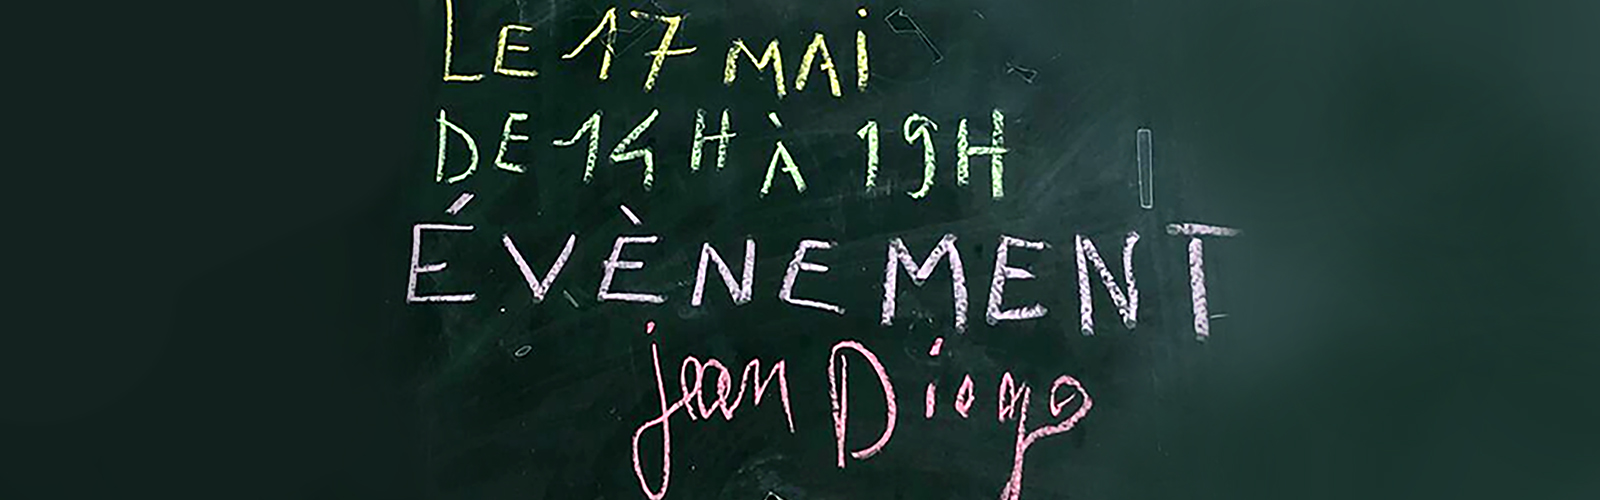 LE 17 MAI
DE 14H À 19H
ÉVÈNEMENT
jean Diego